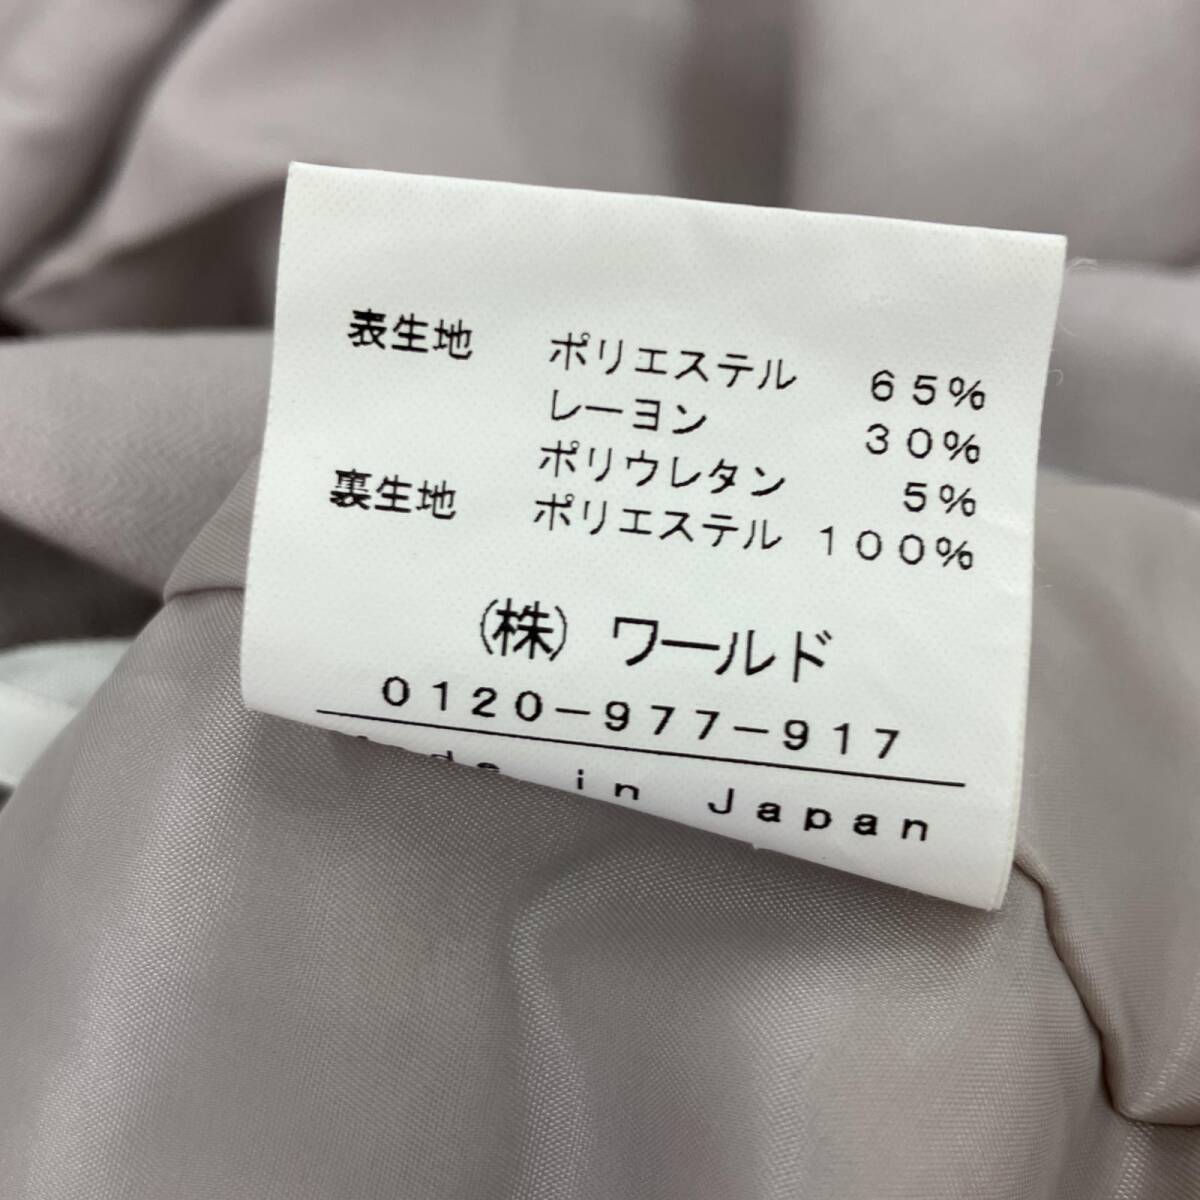 表生地 ポリエステル 65%
レーヨン 30%
ポリウレタン 5%
裏生地 ポリエステル 100%
(株) ワールド
0120-977-917
Made in Japan